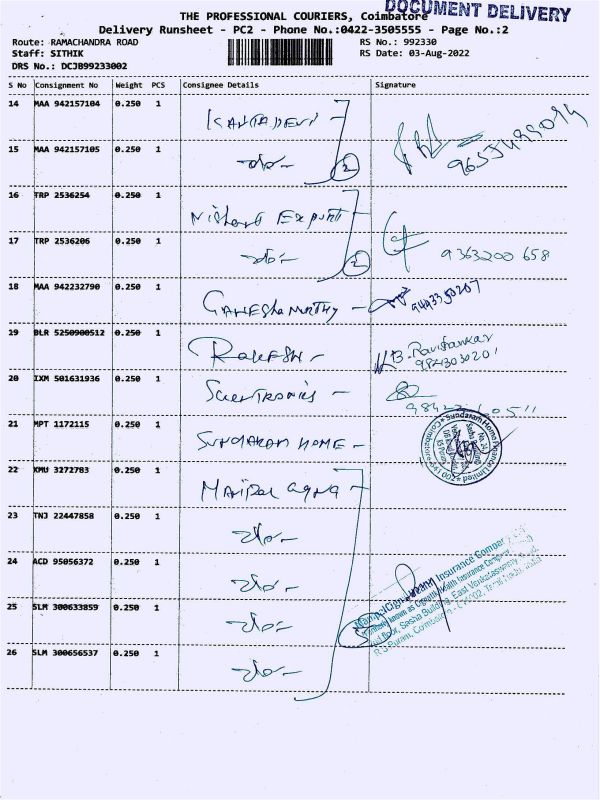 DOCUMENT DELIVERY
THE PROFESSIONAL COURIERS, Coimbatore
Delivery Runsheet - PC2 - Phone No.:0422-3505555 - Page No.:2
Route: RAMACHANDRA ROAD RS No.: 992330
Staff: SITHIK RS Date: 03-Aug-2022
DRS No.: DCJB99233002
S No Consignment No Weight PCS Consignee Details Signature
14 MAA 942157104 0.250 1 KANTA DEVI
15 MAA 942157105 0.250 1 -do- 2
16 TRP 2536254 0.250 1 Nishant Export
17 TRP 2536206 0.250 1 -do- 2 9363200 658
18 MAA 942232790 0.250 1 GANESHAMURTHY - 9443350207
19 BLR 5250900512 0.250 1 RAKESH - B. Ravishankar
9842303020
20 IXM 501631936 0.250 1 Scientronics -
21 MPT 1172115 0.250 1 SUNDARAM HOME - Sundaram Home Finance Limited * Coimbatore
22 KMU 3272783 0.250 1 Manipal cigna -
23 TNJ 22447858 0.250 1 -do-
24 ACD 95056372 0.250 1 -do-
25 SLM 300633859 0.250 1 -do- ManipalCigna Health Insurance Company
Floor, Sasha Building, East Venkatasamy
R S Puram, Coimbatore
26 SLM 300656537 0.250 1 -do-